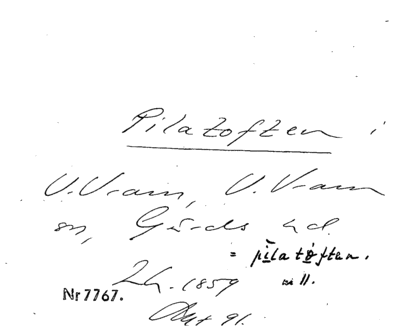 Pilatoften i
V. Vram, V. Vram
sn, Gärds hd.
= pilatǫften.
24. 1859
Nr 7767.
Akt 91.